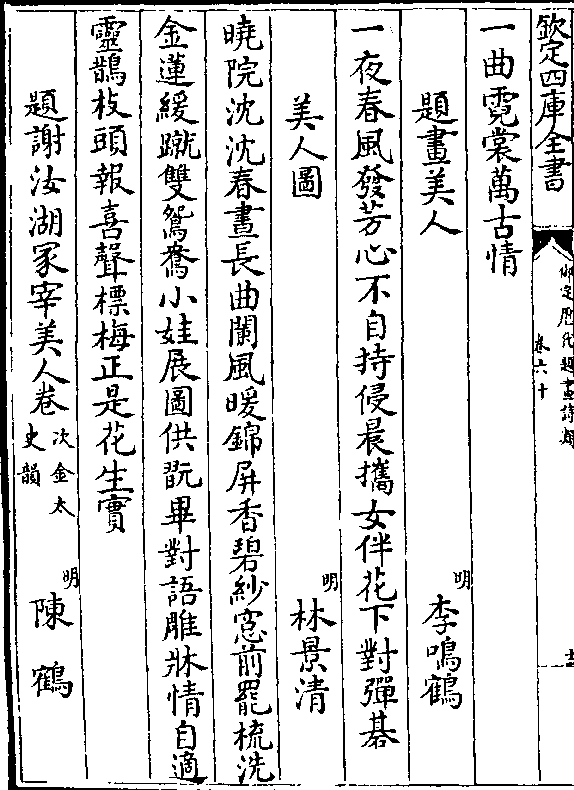 欽定四庫全書
御定歷代題畫詩類
卷六十
一曲霓裳萬古情
題畫美人 明 李鳴鶴
一夜春風發芳心不自持侵晨攜女伴花下對彈棊
美人圖 明 林景清
曉院沈沈春晝長曲闌風暖錦屏香碧紗窓前罷梳洗
金蓮緩蹴雙鴛鴦小娃展圖供翫畢對語雕牀情自適
靈鵲枝頭報喜聲摽梅正是花生實
題謝汝湖冢宰美人卷 次金太史韻 明 陳鶴